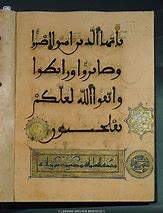 يأيها الذين امنوا اصبروا
وصابروا ورابطوا
واتقوا الله لعلكم
تفلحون